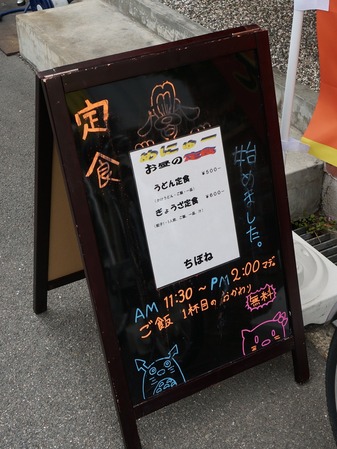 定食
めにゅー
お昼の定食
うどん定食 ¥500〜
ぎょうざ定食 ¥600〜
ちぼね
始めました。
AM 11:30 〜 PM 2:00 マデ
ご飯 1杯目のおかわり 無料